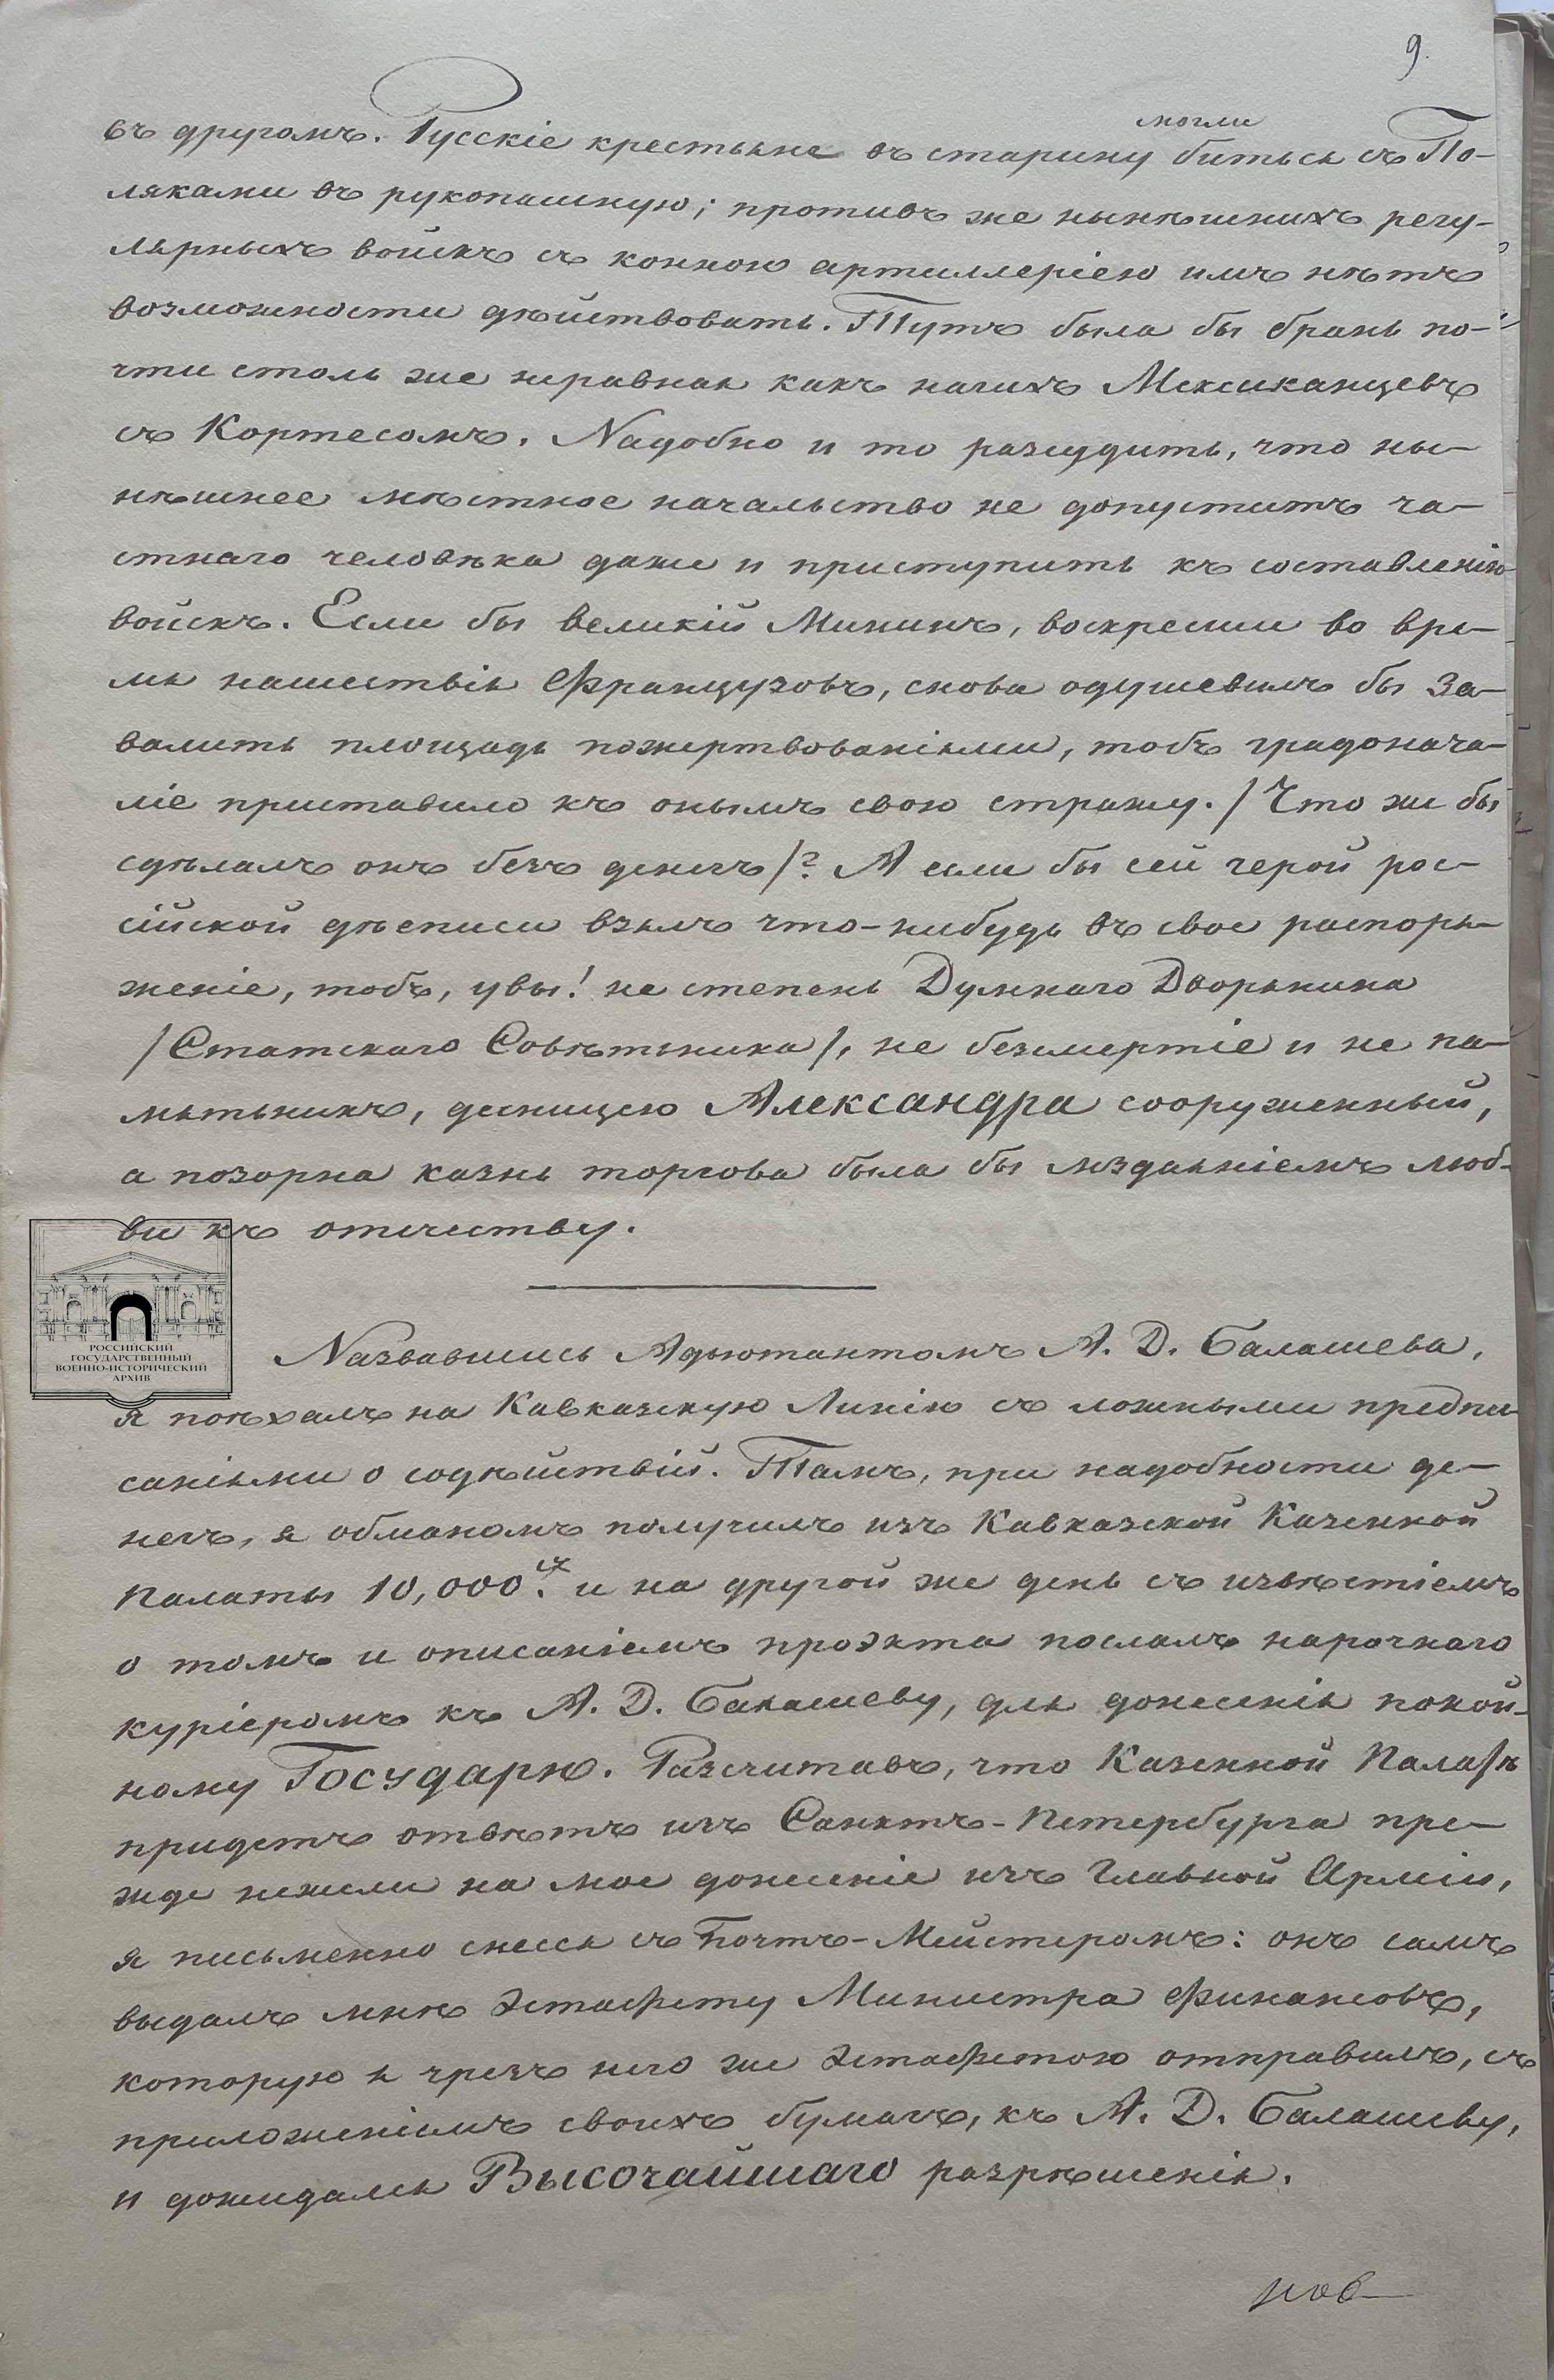 9.
въ другомъ. Русскіе крестьяне въ старину могли биться съ По-
ляками въ рукопашную; противъ же нынѣшнихъ регу-
лярныхъ войскъ съ конною артиллеріею имъ нѣтъ
возможности дѣйствовать. Тутъ была бы брань по-
чти столь же неравная какъ нагихъ Мексиканцевъ
съ Кортесомъ. Надобно и то разсудить, что ны-
нѣшнее мѣстное начальство не допуститъ ча-
стнаго человѣка даже и приступить къ составленію
войскъ. Если бы великій Мининъ, воскресши во вре-
мя нашествія Французовъ, снова одушевилъ бы за-
валить площадь пожертвованіями, тобъ градонача-
ліе приставило къ онымъ свою стражу. /Что же бы
сдѣлалъ онъ безъ денегъ/? А если бы сей герой рос-
сійской дѣеписи взялъ что-нибудь въ свое распоря-
женіе, тобъ, увы! не степень Думнаго Дворянина
/Статскаго Совѣтьника/, не безмертіе и не па-
мятьникъ, десницею Александра сооруженный,
а позорна казнь торгова была бы мздаяніемъ люб-
ви къ отечеству.
РОССИЙСКИЙ
ГОСУДАРСТВЕННЫЙ
ВОЕННО-ИСТОРИЧЕСКИЙ
АРХИВ
Назвавшись Адьютантомъ А. Д. Балашева,
я поѣхалъ на Кавказскую Линію съ ложными предпи-
саніями о содѣйствій. Тамъ, при надобности де-
негъ, я обманомъ получилъ изъ Кавказской Казенной
Палаты 10,000. и на другой же день съ извѣстіемъ
о томъ и описаніемъ проэкта послалъ нарочнаго
куріеромъ къ А. Д. Балашеву, для донесенія покой-
ному Государю. Разсчитавъ, что Казенной Палатѣ
придетъ отвѣтъ изъ Санктъ-Петербурга пре-
жде нежели на мое донесеніе изъ Главной Арміи,
я письменно снесся съ Почтъ-Мейстеромъ: онъ самъ
выдалъ мнѣ Эстафету Министра Финансовъ,
которую я чрезъ него же Эстафетою отправилъ, съ
приложеніемъ своихъ бумагъ, къ А. Д. Балашеву,
и дожидался Высочайшаго разрѣшенія.